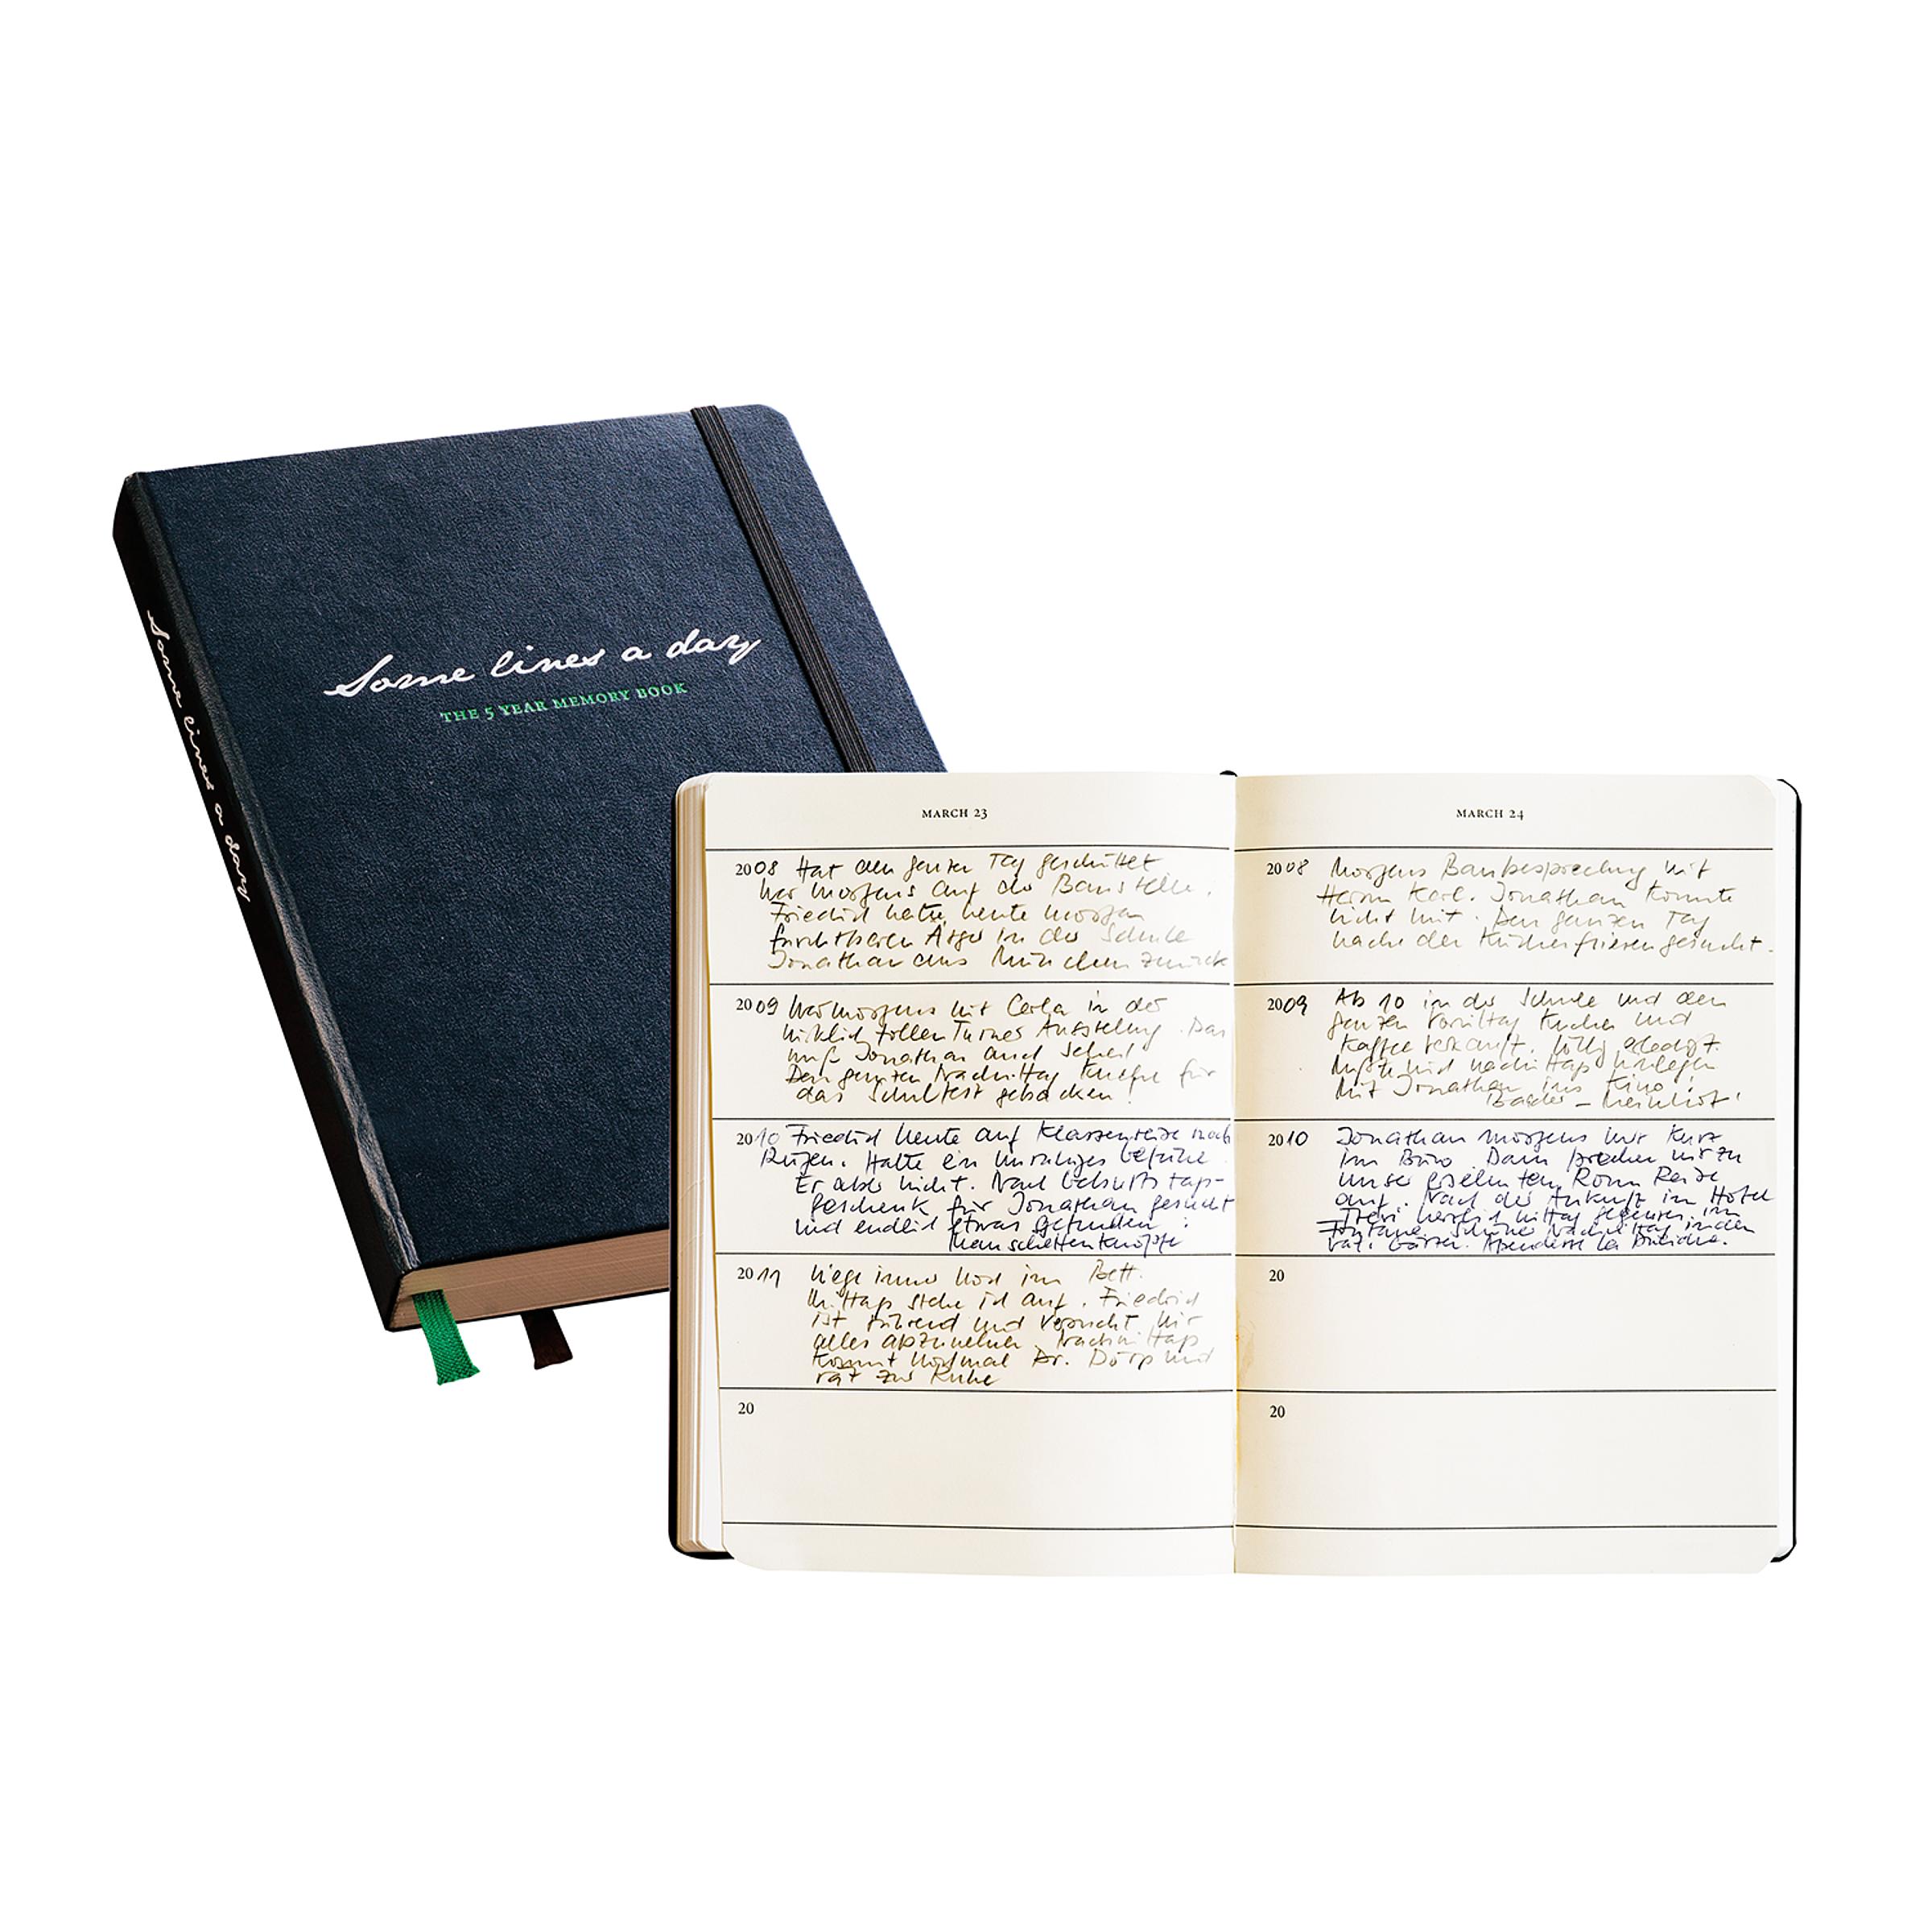 Some lines a day
THE 5 YEAR MEMORY BOOK
Some lines a day
MARCH 23
2008 Hat den ganzen Tag geschüttet
War morgens auf der Baustelle.
Friedrich hatte heute morgen
furchtbaren Ärger in der Schule
Jonathan aus München zurück
2009 War morgens mit Carla in der
wirklich tollen Turner Ausstellung. Das
muß Jonathan auch sehen!
Den ganzen Nachmittag Kuchen für
das Schulfest gebacken!
2010 Friedrich heute auf Klassenreise nach
Rügen. Hatte ein unruhiges Gefühl.
Er aber nicht. Nach Geburtstags-
geschenk für Jonathan gesucht
und endlich etwas gefunden:
Manschettenknöpfe
2011 Liege immer noch im Bett.
Mittags stehe ich auf. Friedrich
ist rührend und versucht mir
alles abzunehmen. Nachmittags
kommt nochmal Dr. Dörp und
rät zur Ruhe
20
MARCH 24
2008 Morgens Baubesprechung mit
Herrn Karl. Jonathan konnte
nicht mit. Den ganzen Tag
nach den Küchenfliesen gesucht.
2009 Ab 10 in der Schule und den
ganzen Vormittag Kuchen und
Kaffee verkauft. Völlig erledigt.
Mußte mich nachmittags hinlegen
Mit Jonathan ins Kino!
Baader - Meinhof!
2010 Jonathan morgens nur kurz
im Büro Dann brechen wir zu
unser ersehnten Rom Reise
auf. Nach der Ankunft im Hotel
herrlich Mittag gegessen im
Fontane. Schöner Nachmittag in den
Vat. Gärten. Abendessen La
20
20